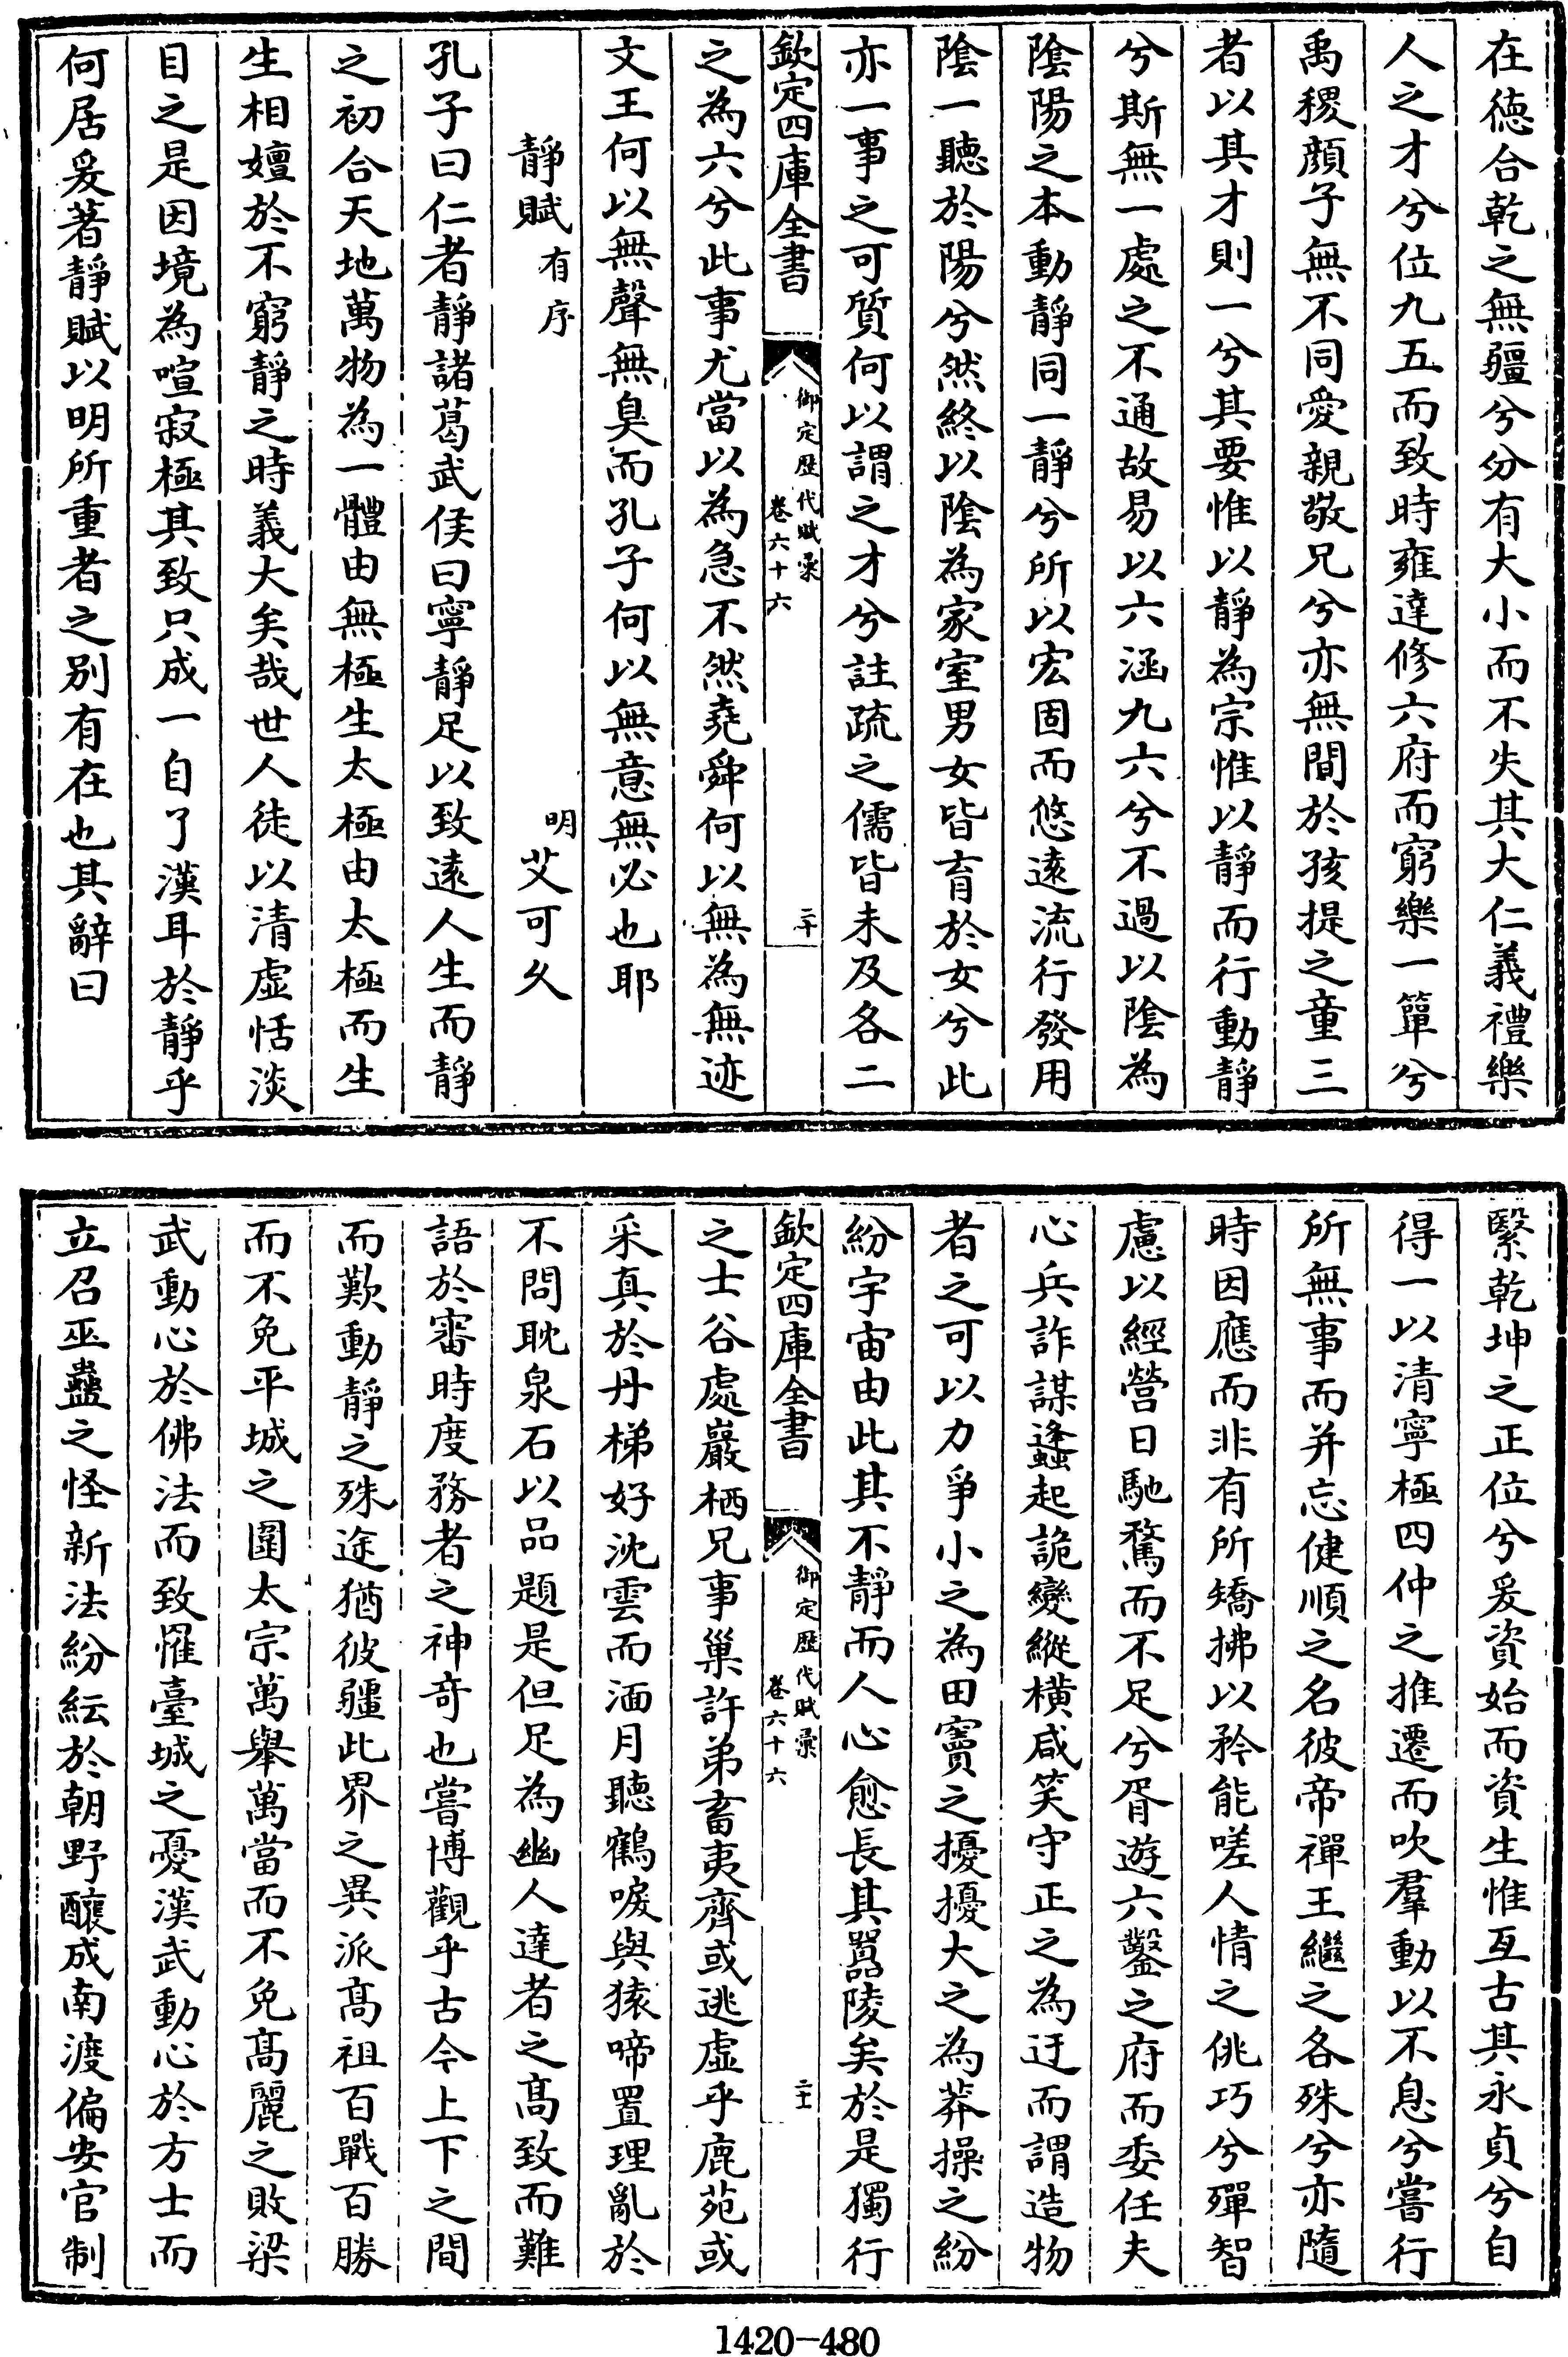 在德合乾之無疆兮分有大小而不失其大仁義禮樂
人之才兮位九五而致時雍達修六府而窮樂一簞兮
禹稷顔子無不同愛親敬兄兮亦無間於孩提之童三
者以其才則一兮其要惟以靜為宗惟以靜而行動靜
兮斯無一處之不通故易以六涵九六兮不過以隂為
隂陽之本動靜同一靜兮所以宏固而悠遠流行發用
隂一聽於陽兮然終以隂為家室男女皆育於女兮此
亦一事之可質何以謂之才兮註疏之儒皆未及各二
欽定四庫全書
御定歴代賦彙
卷六十六
二十
之為六兮此事尤當以為急不然堯舜何以無為無迹
文王何以無聲無臭而孔子何以無意無必也耶
靜賦有序
明艾可久
孔子曰仁者靜諸葛武侯曰寧靜足以致遠人生而靜
之初合天地萬物為一體由無極生太極由太極而生
生相嬗於不窮靜之時義大矣哉世人徒以清虛恬淡
目之是因境為喧寂極其致只成一自了漢耳於靜乎
何居爰著靜賦以明所重者之别有在也其辭曰
緊乾坤之正位兮爰資始而資生惟亙古其永貞兮自
得一以清寧極四仲之推遷而吹羣動以不息兮嘗行
所無事而并忘健順之名彼帝禪王繼之各殊兮亦隨
時因應而非有所矯拂以矜能嗟人情之佻巧兮殫智
慮以經營日馳騖而不足兮胥遊六鑿之府而委任夫
心兵詐謀蠭起詭變縱横咸笑守正之為迂而謂造物
者之可以力爭小之為田竇之擾擾大之為莽操之紛
紛宇宙由此其不靜而人心愈長其囂陵矣於是獨行
欽定四庫全書
御定歴代賦彙
卷六十六
二十一
之士谷處巖栖兄事巢許弟畜夷齊或逃虛乎鹿苑或
采真於丹梯好沈雲而湎月聽鶴唳與猿啼置理亂於
不問耽泉石以品題是但足為幽人達者之髙致而難
語於審時度務者之神奇也嘗博觀乎古今上下之間
而歎動靜之殊途猶彼疆此界之異派髙祖百戰百勝
而不免平城之圍太宗萬舉萬當而不免髙麗之敗梁
武動心於佛法而致罹臺城之憂漢武動心於方士而
立召巫蠱之怪新法紛紜於朝野釀成南渡偏安官制
1420-480